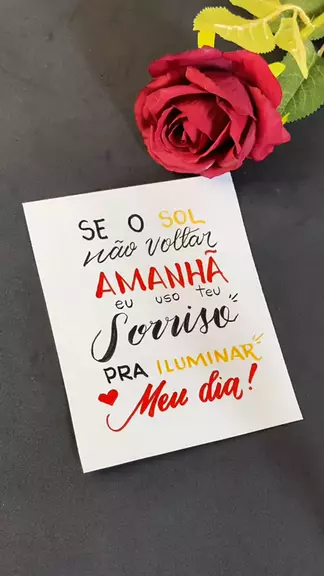 SE O SOL
não voltar
AMANHÃ
eu uso teu
Sorriso
PRA ILUMINAR
Meu dia!